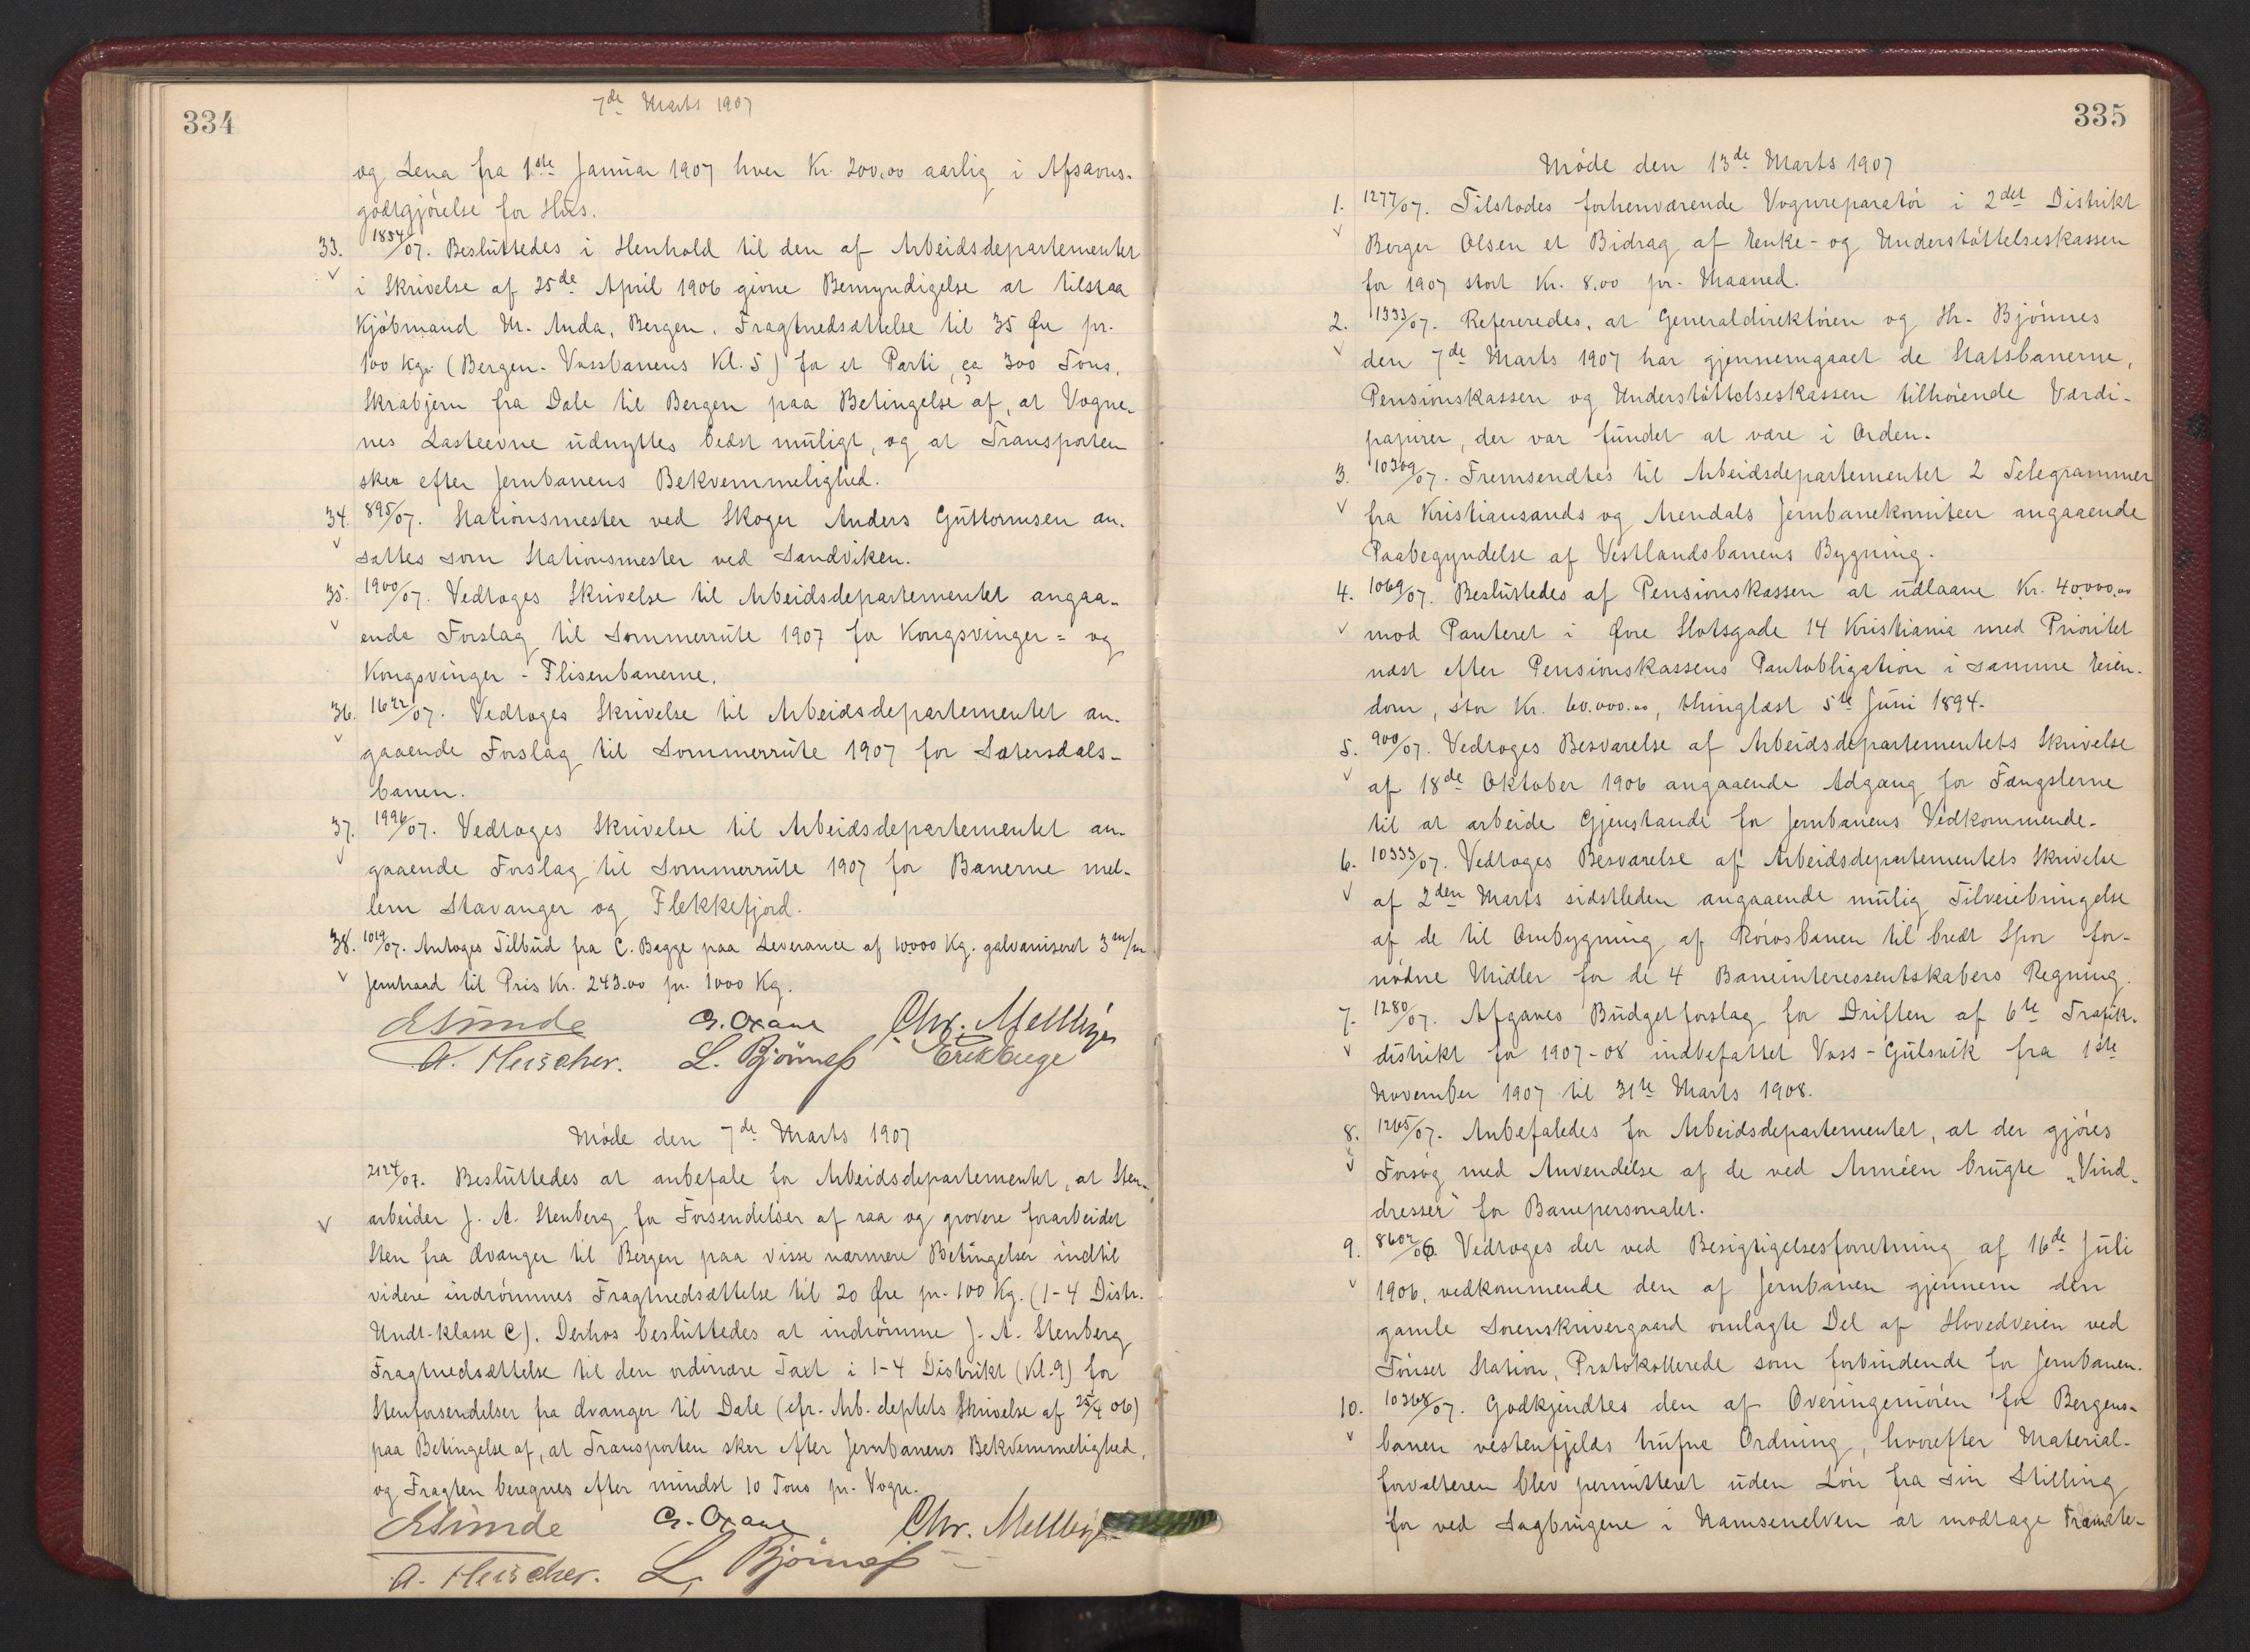 334
7de Marts 1907
og Lena fra 1ste Januar 1907 hver Kr. 200,00 aarlig i Afsavns-
godtgjörelse for Hus.
33. 1854/07. Besluttedes i Henhold til den af Arbeidsdepartementet
i Skrivelse af 25de April 1906 givne Bemyndigelse at tilstaa
Kjöbmand M. Anda, Bergen, Fragtnedsættelse til 35 Øre pr.
100 kg. (Bergen-Vossbanens Kl. 5) for et Parti, ca 300 Tons,
Skrabjern fra Dale til Bergen paa Betingelse af, at Vogne-
nes Lasteevne udnyttes bedst muligt, og at Transporten
sker efter Jernbanens Bekvemmelighed.
34. 895/07. Stationsmester ved Skoger Anders Guttormsen an-
sattes som Stationsmester ved Sandviken.
35. 1900/07. Vedtoges Skrivelse til Arbeidsdepartementet angaa-
ende Forslag til Sommerrute 1907 for Kongsvinger= og
Kongsvinger-Flisenbanerne.
36. 1622/07. Vedtoges Skrivelse til Arbeidsdepartementet an-
gaaende Forslag til Sommerrute 1907 for Sætersdals-
banen.
37. 1996/07. Vedtoges Skrivelse til Arbeidsdepartementet an-
gaaende Forslag til Sommerrute 1907 for Banerne mel-
lem Stavanger og Flekkefjord.
38. 1019/07. Antoges Tilbud fra C. Bagge paa Leverance af 10000 Kg. galvaniseret 3 m/m
Jerntraad til Pris Kr. 243.00 pr. 1000 Kg.
ESunde G. Crane Chr. Mellbye
A. Fleischer. L. Bjönnes
Möde den 7de Marts 1907
2124/07. Besluttedes at anbefale for Arbeidsdepartementet, at Sten-
arbeider J. A. Stenberg for Forsendelser af raa og grovere forarbeidet
Sten fra Evanger til Bergen paa visse nærmere Betingelser indtil
videre indrömmes Fragtnedsættelse til 20 Øre pr. 100 Kg. (1-4 Distr.
Undt.klasse C). Derhos besluttedes at indrömme J. A. Stenberg
Fragtnedsættelse til den ordinære Taxt i 1-4 Distrikt (Kl. 9) for
Stenforsendelser fra Evanger til Dale (cfr. Arb. deptets Skrivelse af 25/4 06)
paa Betingelse af, at Transporten sker efter Jernbanens Bekvemmelighed,
og Fragten beregnes efter mindst 10 Tons pr. Vogn.
ESunde G. Crane Chr. Mellbye
A. Fleischer. L. Bjönnes
335
Möde den 13de Marts 1907
1. 1277/07. Tilstodes forhenværende Vognreparatör i 2det Distrikt
Berger Olsen et Bidrag af Enke- og Understöttelseskassen
for 1907 stort Kr. 8,00 pr. Maaned.
2. 1333/07. Refereredes, at Generaldirektören og Hr. Bjönnes
den 7de Marts 1907 har gjennemgaaet de Statsbanerne,
Pensionskassen og Understöttelseskassen tilhörende Værdi-
papirer, der var fundet at være i Orden.
3. 10309/07. Fremsendtes til Arbeidsdepartementet 2 Telegrammer
fra Kristiansands og Arendals Jernbanekomiteer angaaende
Paabegyndelse af Vestlandsbanens Bygning.
4. 1069/07. Besluttedes af Pensionskassen at udlaane Kr. 40.000.00
mod Panteret i Øvre Slotsgade 14 Kristiania med Prioritet
næst efter Pensionskassens Pantobligation i samme Eien-
dom, stor Kr. 60.000.00, thinglæst 5te Juni 1894.
5. 900/07. Vedtoges Besvarelse af Arbeidsdepartementets Skrivelse
af 18de Oktober 1906 angaaende Adgang for Fængslerne
til at arbeide Gjenstande for Jernbanens Vedkommende.
6. 10333/07. Vedtoges Besvarelse af Arbeidsdepartementets Skrivelse
af 2den Marts sidstleden angaaende mulig Tilveiebringelse
af de til Ombygning af Rörosbanen til bredt Spor for-
nödne Midler for de 4 Baneinteressentskabers Regning.
7. 1280/07. Afgaves Budgetforslag for Driften af 6te Trafik-
distrikt for 1907-08 indbefattet Voss-Gulsvik fra 1ste
November 1907 til 31te Marts 1908.
8. 1265/07. Anbefaledes for Arbeidsdepartementet, at der gjöres
Forsög med Anvendelse af de ved Arméen brugte „Vind-
dresser" for Banepersonalet.
9. 8602/06. Vedtoges det ved Besigtigelsesforretning af 16de Juli
1906, vedkommende den af Jernbanen gjennem den
gamle Sorenskrivergaard omlagte Del af Hovedveien ved
Tönset Station, Protokollerede som forbindende for Jernbanen.
10. 10368/07. Godkjendtes den af Overingeniören for Bergens-
banen vestenfjelds trufne Ordning, hvorefter Material-
forvalteren blev permitteret uden Lön fra sin Stilling
for ved Sagbrugene i Namsenelven at modtage Træmate-